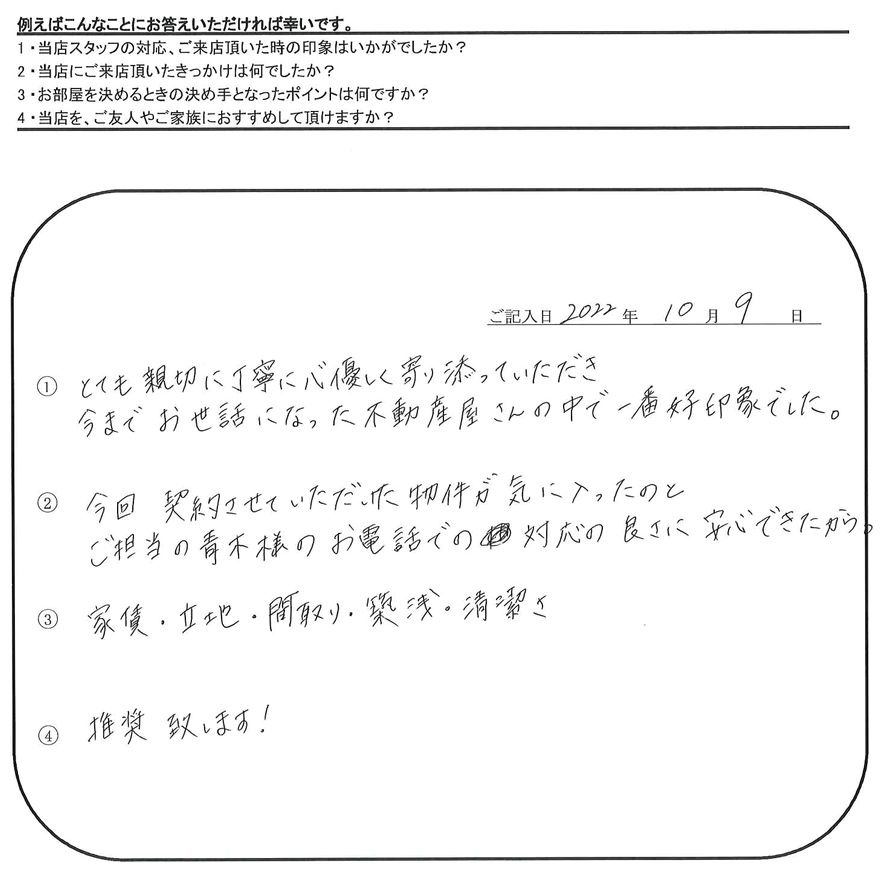 例えばこんなことにお答えいただければ幸いです。
1・当店スタッフの対応、ご来店頂いた時の印象はいかがでしたか？
2・当店にご来店頂いたきっかけは何でしたか？
3・お部屋を決めるときの決め手となったポイントは何ですか？
4・当店を、ご友人やご家族におすすめして頂けますか？
ご記入日 2022 年 10 月 9 日
① とても親切に丁寧に心優しく寄り添っていただき
今までお世話になった不動産屋さんの中で一番好印象でした。
② 今回 契約させていただいた物件が気に入ったのと
ご担当の青木様のお電話での対応の良さに安心できたから。
③ 家賃・立地・間取り・築浅・清潔さ
④ 推奨 致します！